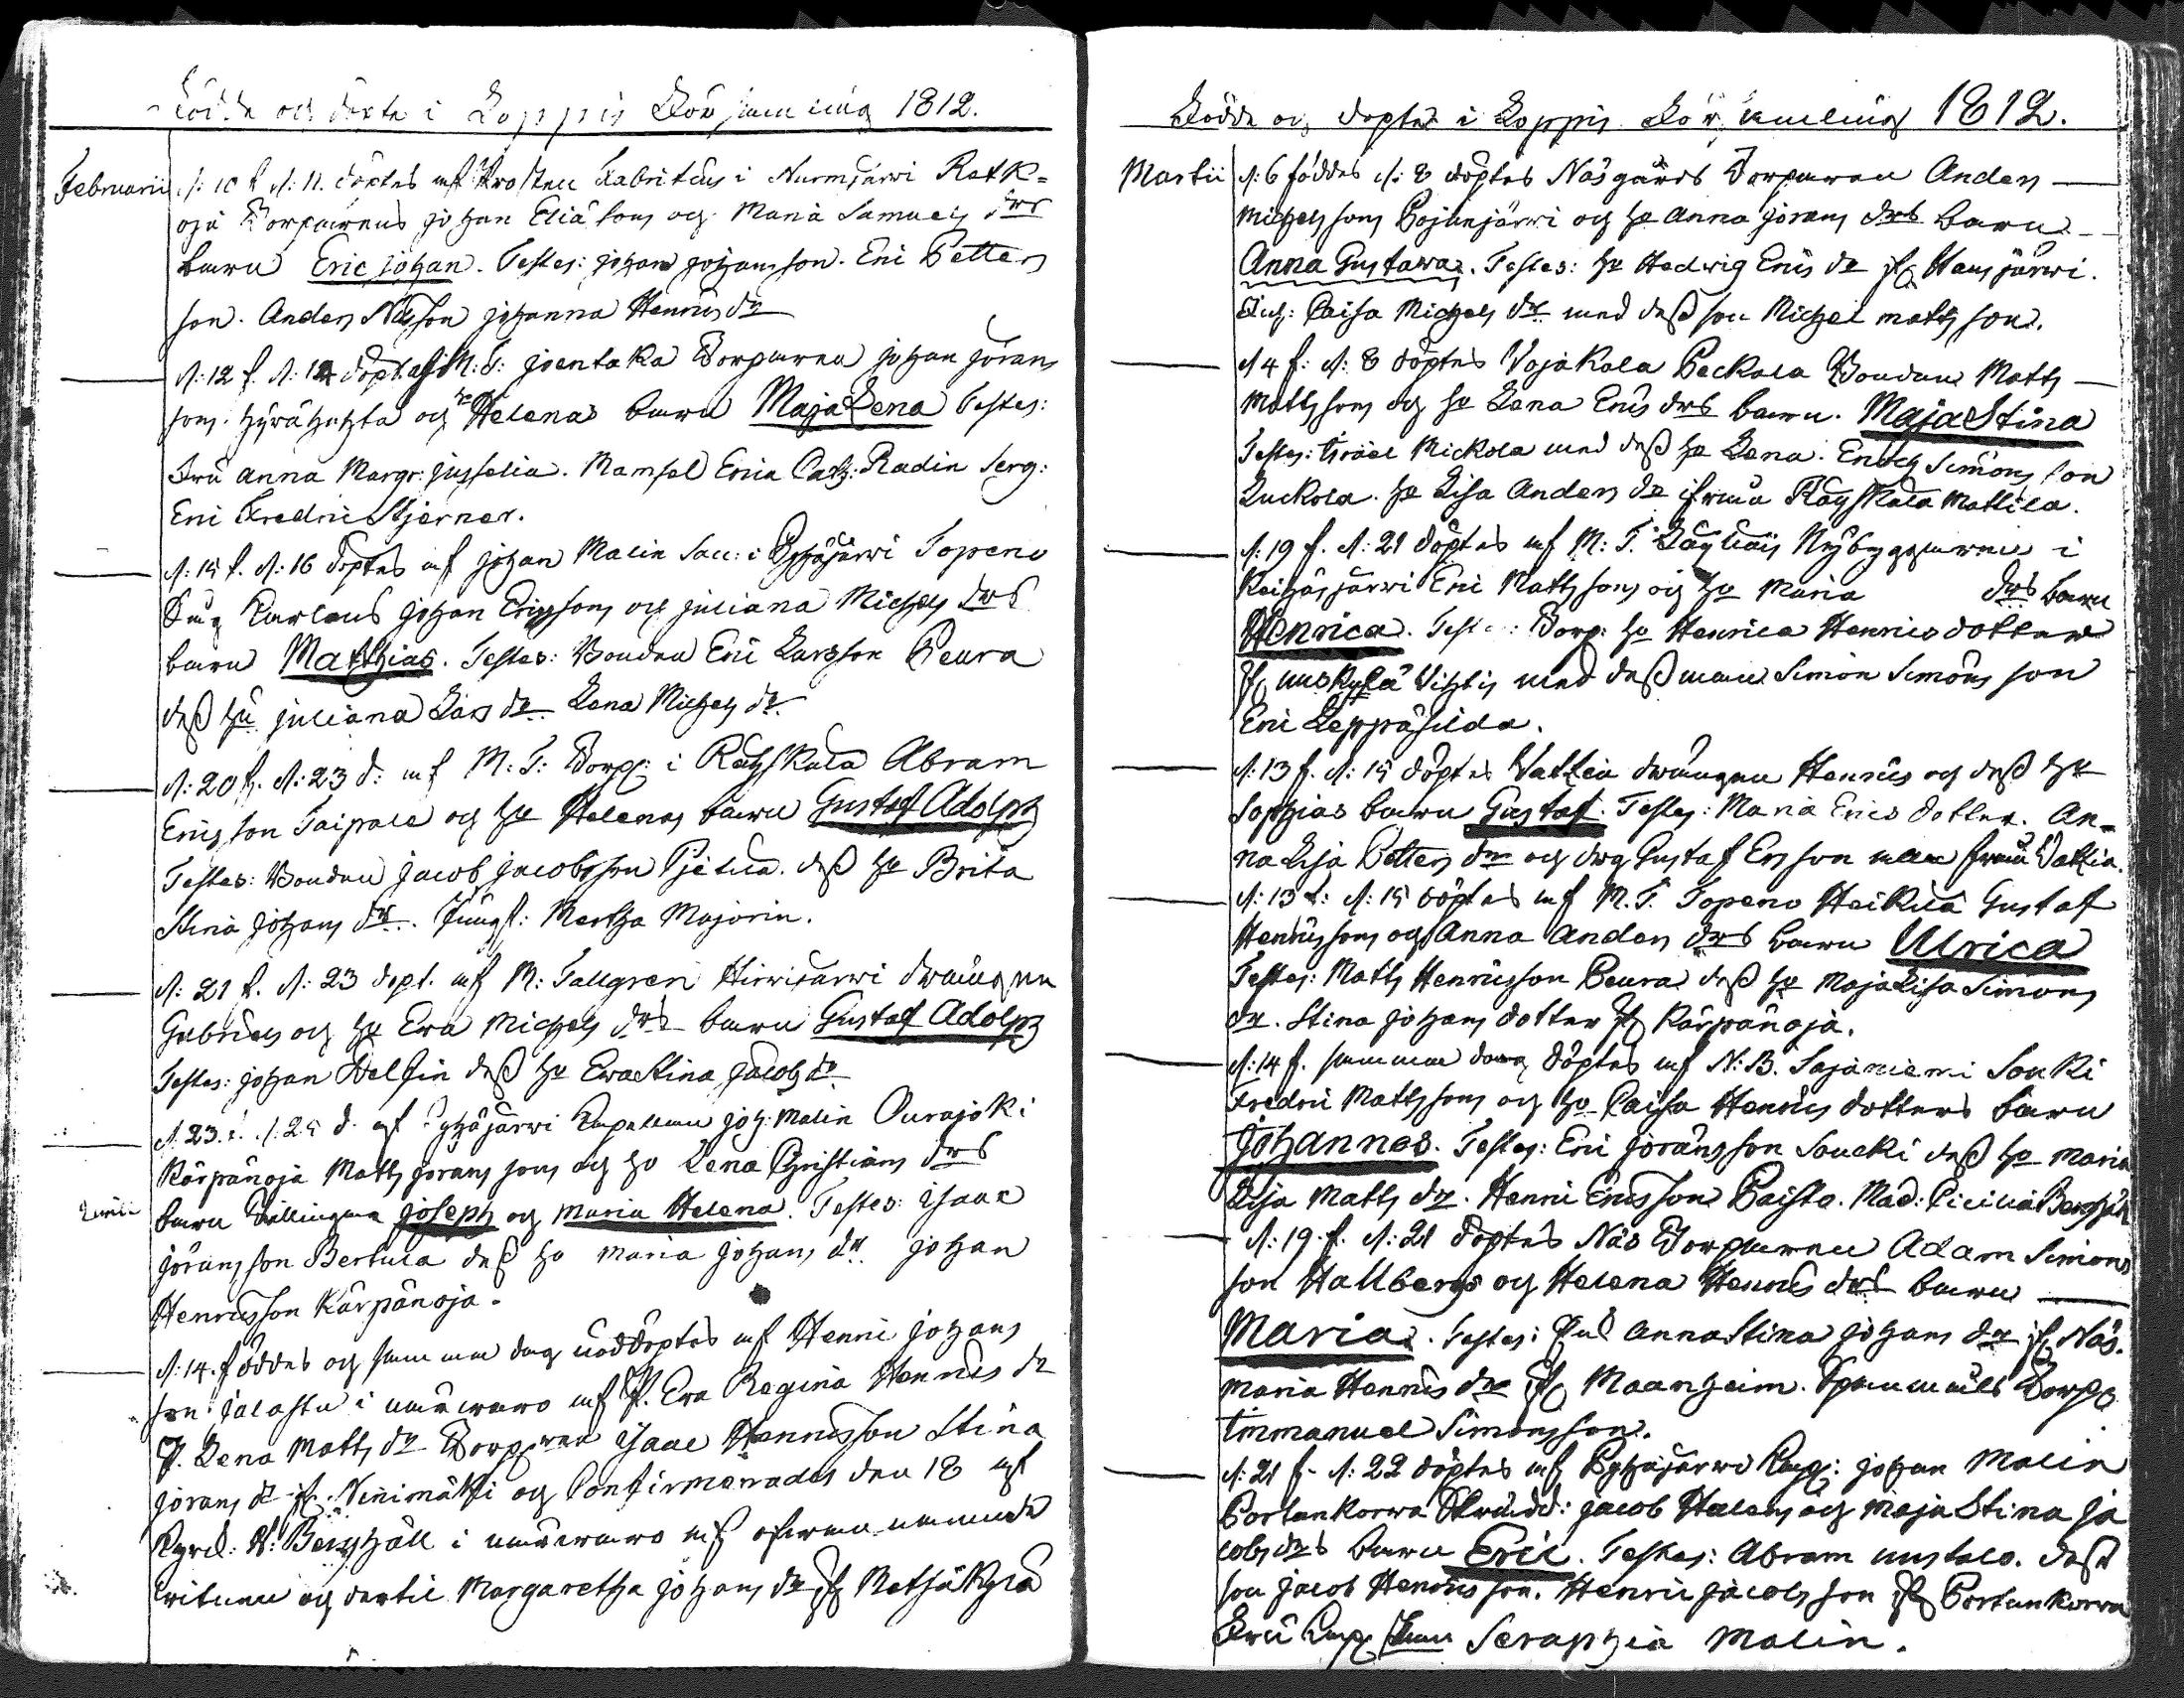 Födde och döpte i Loppis Församling 1812.
Februarii d: 10 f d: 11. döptes af Prosten Fabritius i Nurmijärvi Ratk=
oja Torparens Johan Eliæ sons och Maria Samuels drs
barn Eric Johan. Testes: Johan Johansson. Eric Petters
son. Anders Nilsson Johanna Henrics dr
d: 12 f. d: 14 döpt af M. T: Joentaka Torparen Johan Jörans
sons. Hyrähuhta och hu Helenas barn Maja Lena Testes:
Fru Anna Margr: Jusselia. Mamsel Erica Cath: Radin Serg:
Eric Fredric Stjerner.
d: 15 f. d: 16 döptes af Johan Malin Sac: i Pyhäjärvi Topeno
Johan Ericssons och Juliana Michels drs
barn Matthias. Testes: Bonden Eric Larsson Peura
dess hu Juliana Lars dr. Lena Michels dr.
d: 20 f. d: 23 d: af M. T: Torp: i Räyskälä Abram
Ericsson Taipale och hu Helenas barn Gustaf Adolph
Testes: Bonden Jacob Jacobsson Pietilä. dess hu Brita
Stina Johans dr. Jungf: Martha Majorin.
d: 21 f. d: 23 döpt. af M: Tallgren Hirvijärvi drängen
Gabriels och hu Eva Michels drs barn Gustaf Adolph
Testes: Johan Delfin dess hu Eva Stina Jacobs dr
d. 23. f. d. 25 d. af Pyhäjärvi Capellan Joh: Malin Ourajoki
Kärpänoja Matts Jörans sons och hu Lena Christians drs
barn Tvillingarna Joseph och Maria Helena. Testes: Isaac
Jöransson Bertula dess hu Maria Johans dr. Johan
Henricsson Kärpänoja.
d: 14. föddes och samma dag nöddöptes af Henric Johans
son Jalastu i närwaro af P. Eva Regina Henrics dr
P. Lena Matts dr Torparen Isaac Henricsson Stina
Jörans dr fr. Niinimäki och Confirmerades den 18 af
N: Berghäll i närwaro af ofwannämnde
witnen och dertil Margaretha Johans dr fr Metsäkylä
Födde och döpte i Loppis Församling 1812.
Martii d: 6 föddes d: 8 döptes Näsgårds Torparen Anders
Michelssons Pojanjärvi och hu Anna Jörans drs barn
Anna Gustava. Testes: hu Hedwig Erics dr fr Hansjärvi.
Caisa Michels dr med dess son Michel Mattsson.
d 4 f: d: 8 döptes Vojakala Peckala Bonden Matts
Mattssons och hu Lena Erics drs barn. Maja Stina
Testes: Israel Mickola med dess hu Lena. Enoch Simons son
Luckola. hu Lisa Anders dr ifrån Räyskälä Mattila.
d: 19 f. d: 21 döptes af M: T. Nybyggaren i
Keihäsjärvi Eric Mattssons och hu Maria drs barn
Henrica. Testes: Torp: hu Henrica Henrics dotter
fr Uuskylä med dess man Simon Simons son
Eric Leppäsilda.
d: 13 f. d: 15 döptes drängen Henrics och dess hu
Sophias barn Gustaf. Testes: Maria Erics dotter. An-
na Lisa Petters dr och drg Gustaf Ersson
d: 13 f: d: 15 döptes af M. T. Topeno Heikilä Gustaf
Henricssons och Anna Anders drs barn Ulrica
Testes: Matts Henricsson Peura dess hu Maja Lisa Simons
dr. Stina Johans dotter fr Kärpänoja.
d: 14 f. samma dag döptes af N: B. Sajaniemi Souki
Fredric Mattssons och hu Caisa Henrics dotters barn
Johannes. Testes: Eric Jöransson Soucki dess hu Maria
Lisa Matts dr. Henric Ericsson Paista. Mad: Cicilia Berghäll
d: 19. f. d: 21 döptes Näs Torparen Adam Simons
son Hallbergs och Helena Henrics drs barn
Maria. Testes: Anna Stina Johans dr fr Näs.
Maria Henrics dr fr Maanheim. Torp:
Immanuel Simonsson.
d: 21 f. d: 22 döptes af Pyhäjärvi Cap: Johan Malin
Portankorva Skrädd: Jacob Halens och Maja Stina Ja
cobs drs barn Eric. Testes: Abram Uustalo. dess
son Jacob Henricsson. Henric Jacobsson fr Portankorva
Fru Seraphia Malin.